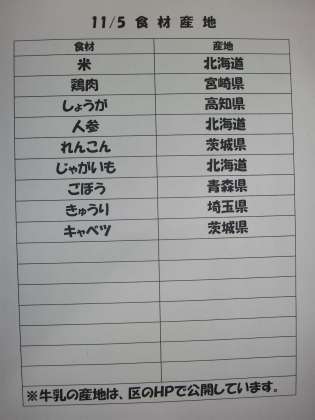 11/5 食材産地
食材 産地
米 北海道
鶏肉 宮崎県
しょうが 高知県
人参 北海道
れんこん 茨城県
じゃがいも 北海道
ごぼう 青森県
きゅうり 埼玉県
キャベツ 茨城県
※牛乳の産地は、区のHPで公開しています。